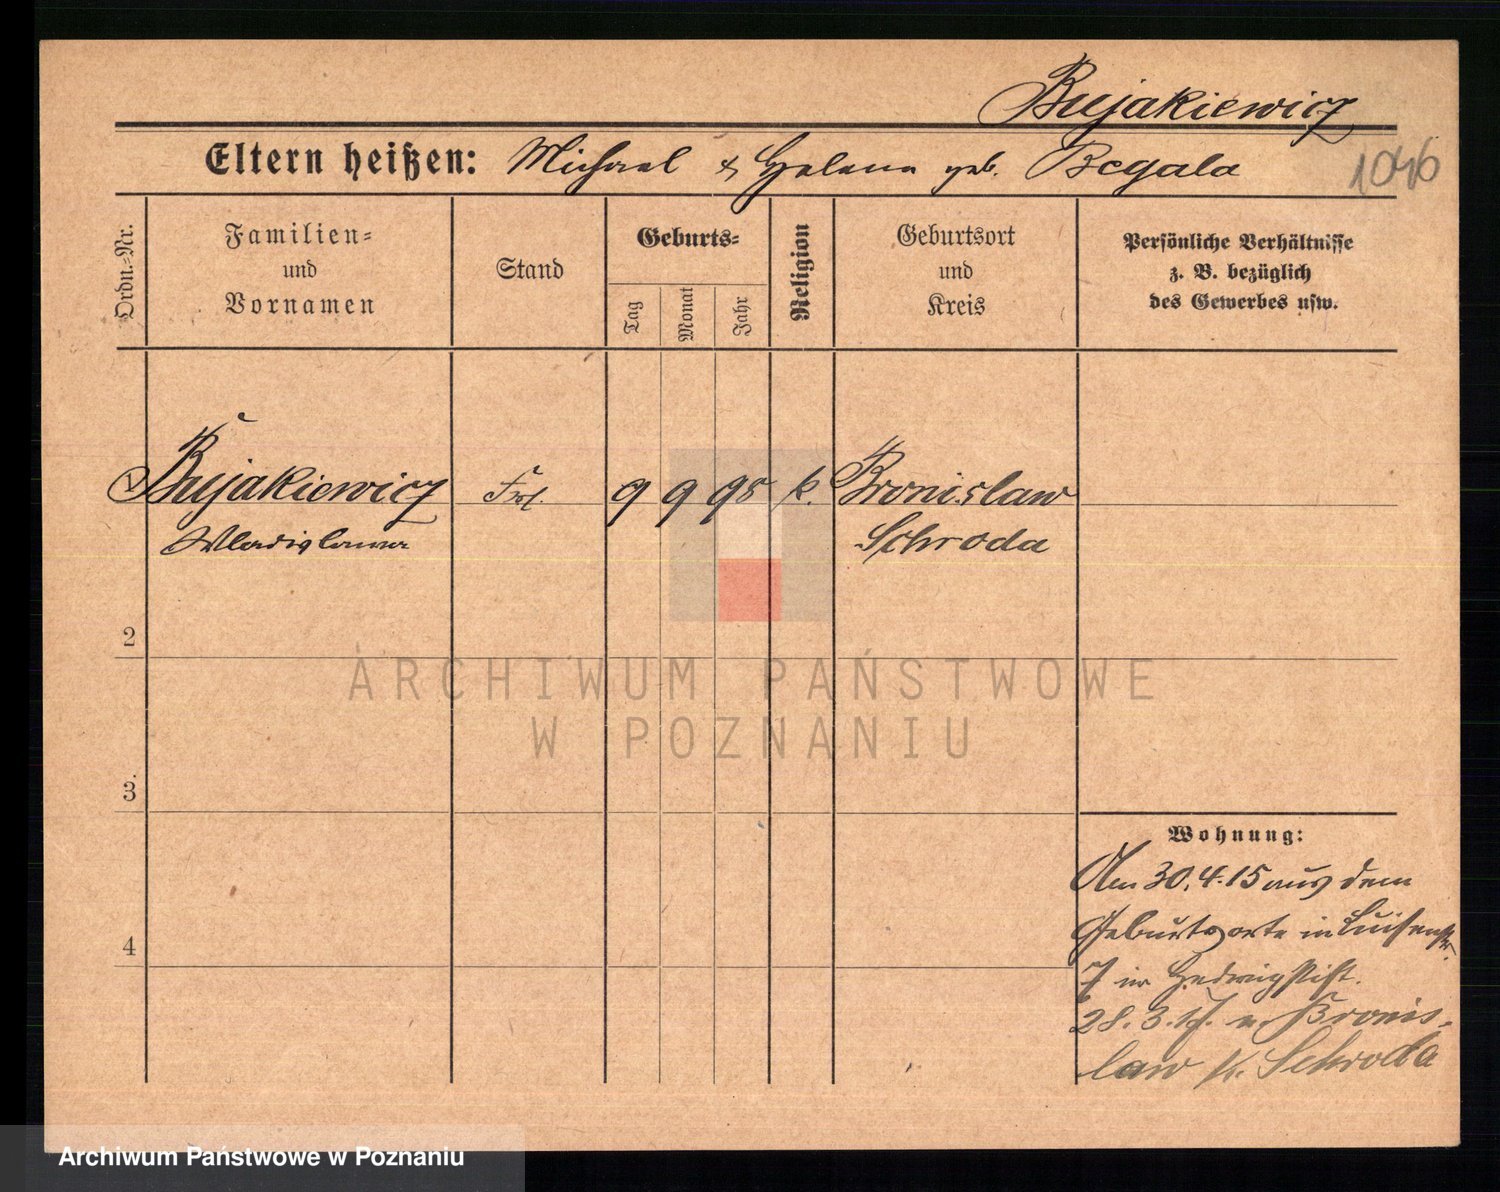 Bujakiewicz
Eltern heißen: Michael & Helena geb. Begala
1046
Ordn.-Nr.
Familien-
und
Vornamen
Stand
Geburts-
Tag
Monat
Jahr
Religion
Geburtsort
und
Kreis
Persönliche Verhältnisse
z. B. bezüglich
des Gewerbes usw.
1 Bujakiewicz Frl. 9 9 98 k. Bronislaw
Wladislawa Schroda
2
ARCHIWUM PAŃSTWOWE
W POZNANIU
3
Wohnung:
Am 30.4.15 aus dem
Geburtsorte in Luisenstr.
7 im Hedwigstift.
28.3.17. n. Bronis-
law K. Schroda
4
Archiwum Państwowe w Poznaniu